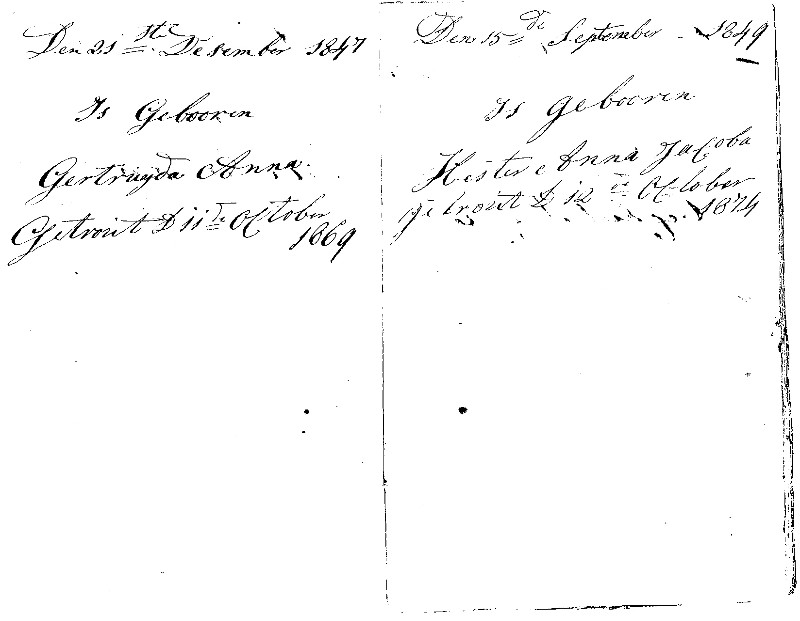 Den 21ste Desember 1847
Is Gebooren
Gertruyda Anna
Getrout D 11de October
1869
Den 15de September - 1849
Is gebooren
Hester Anna Jacoba
getrout D 12de October
1874